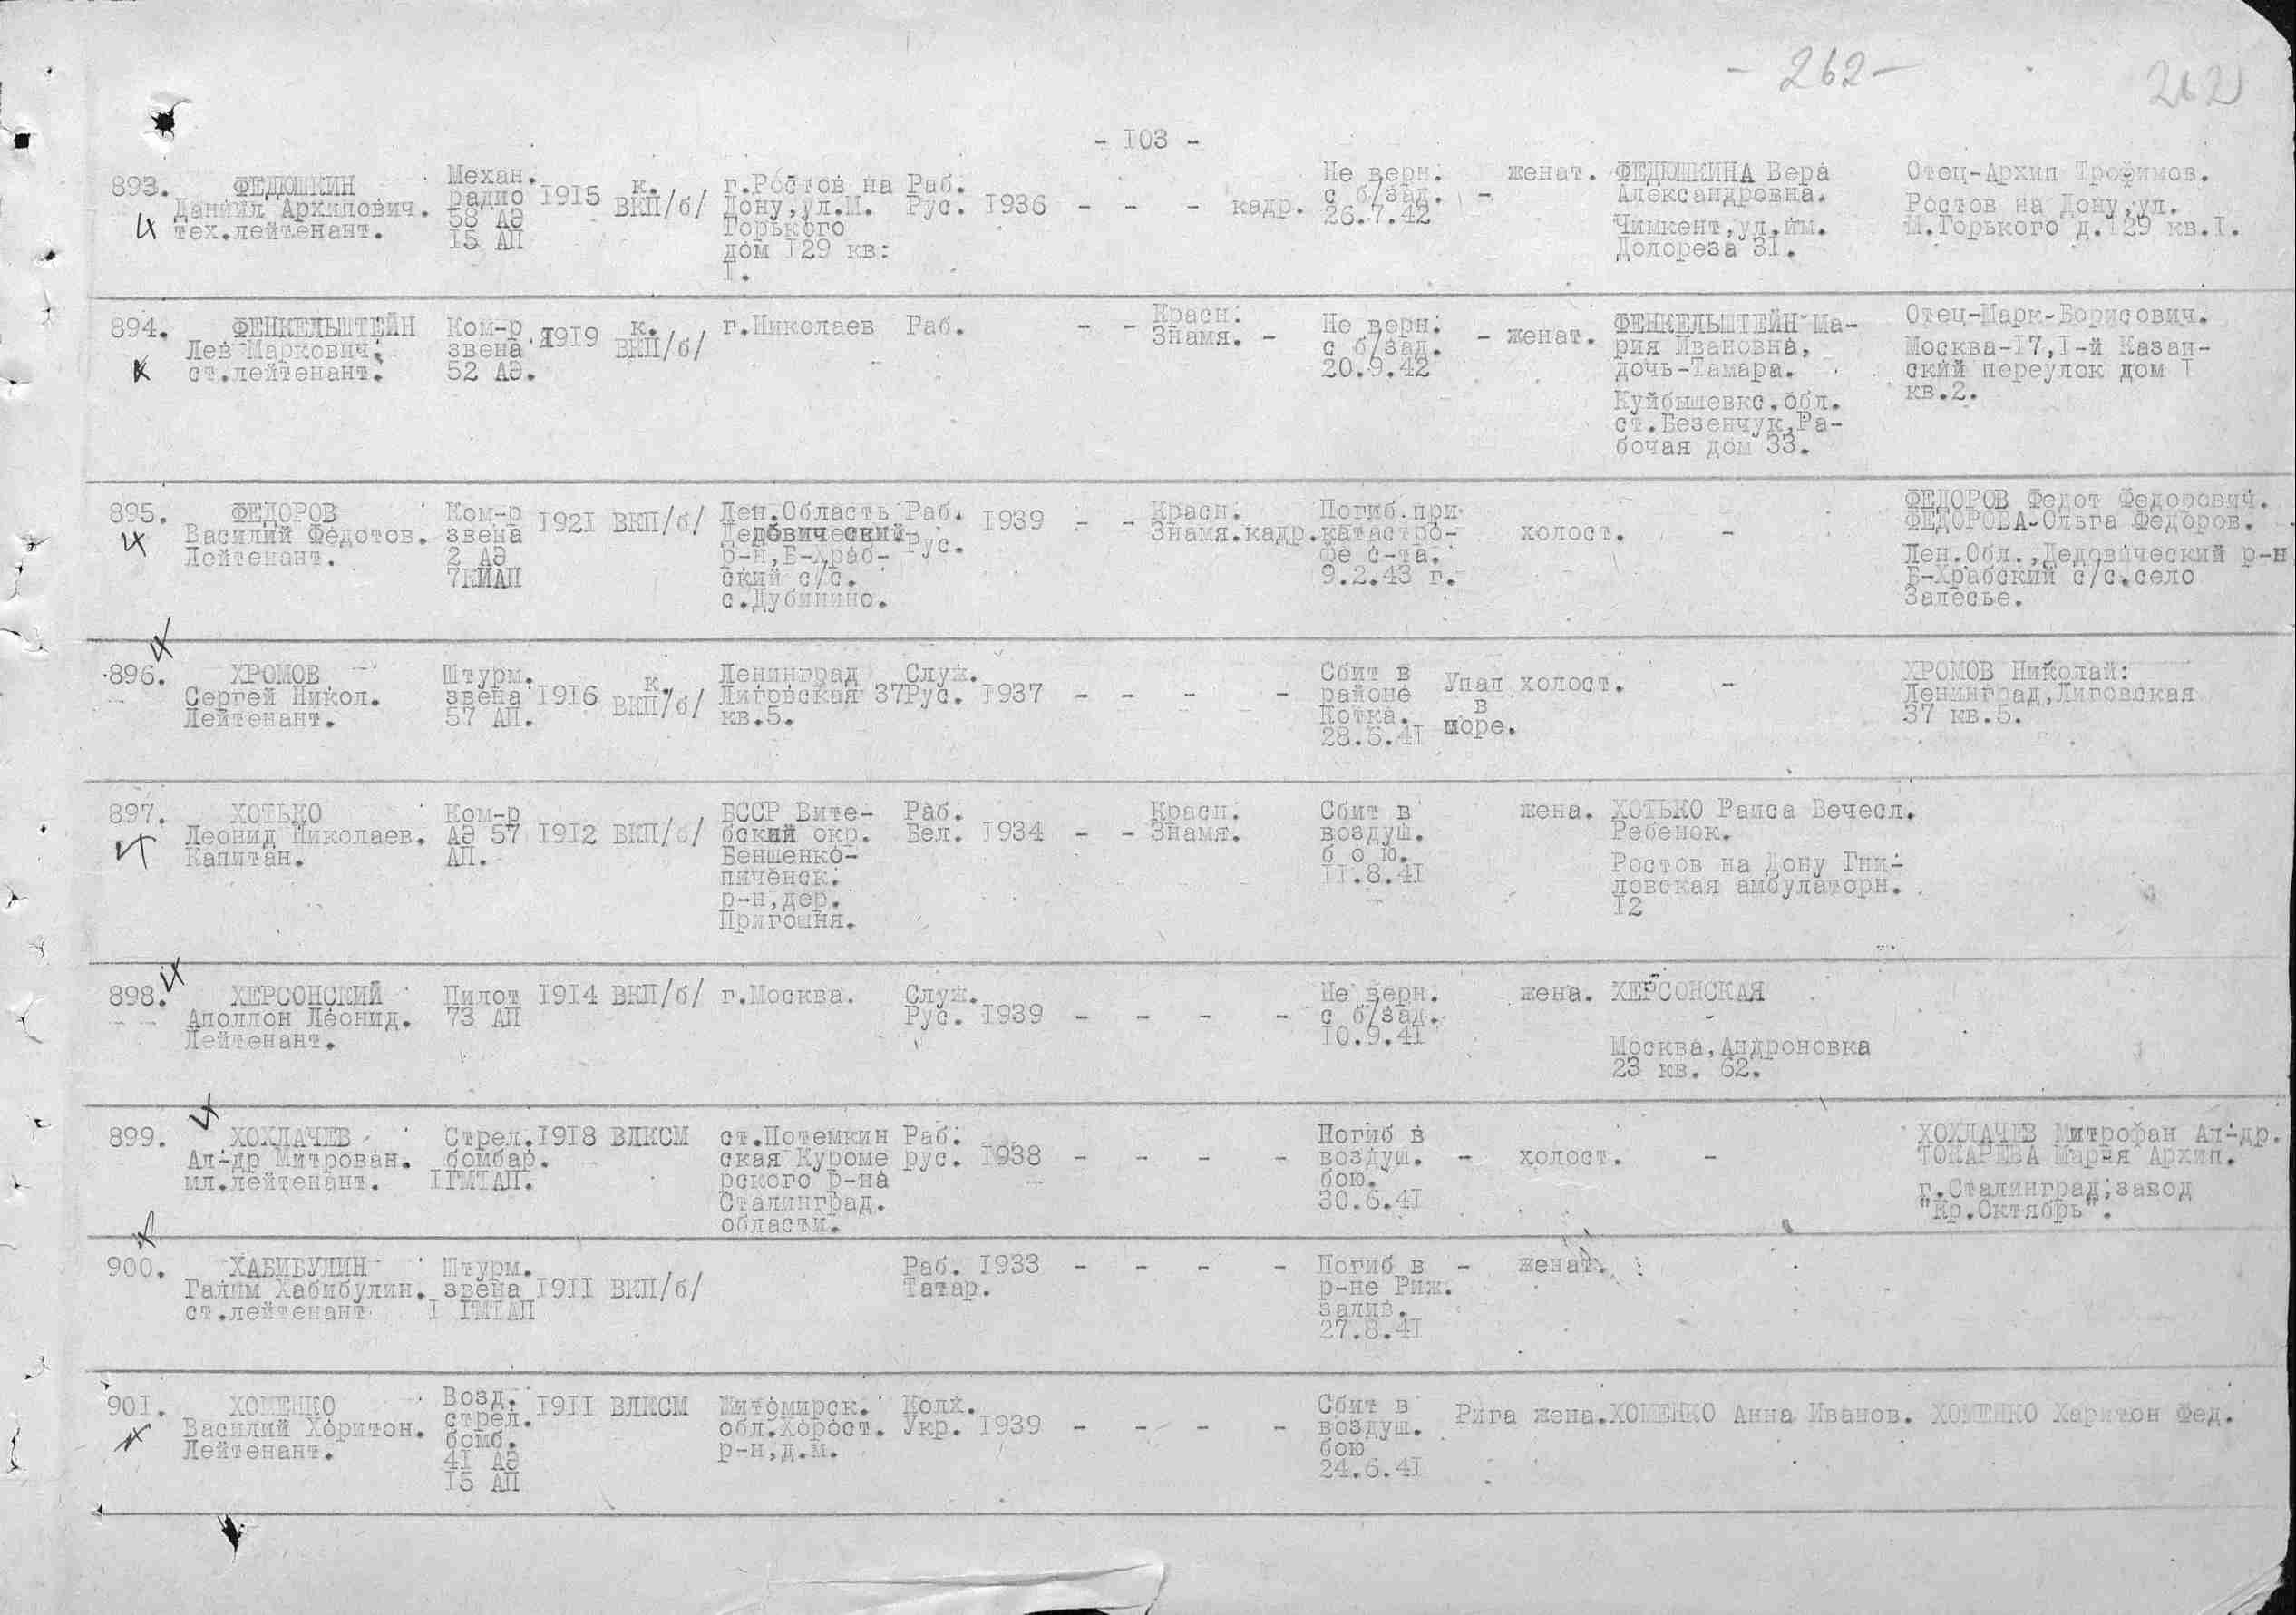 - 262 -
262
- 103 -
893. ФЕДЮШКИН
Даниил Архипович.
тех.лейтенант.
Механ.
радио
58 АЭ
15 АП
1915
к.
ВКП/б/
г.Ростов на
Дону,ул.М.
Горького
дом 129 кв:
1.
Раб.
Рус.
1936 - - - кадр.
Не верн.
с б/зад.
26.7.42
-
женат.
ФЕДЮШКИНА Вера
Александровна.
Чимкент,ул.им.
Долореза 31.
Отец-Архип Трофимов.
Ростов на Дону,ул.
М.Горького д.129 кв.1.
894. ФЕНКЕЛЬШТЕЙН
Лев Маркович.
ст.лейтенант.
Ком-р
звена
52 АЭ.
1919
к.
ВКП/б/
г.Николаев
Раб.
- -
Красн.
Знамя. -
Не верн.
с б/зад.
20.9.42
- женат.
ФЕНКЕЛЬШТЕЙН Ма-
рия Ивановна,
дочь-Тамара.
Куйбышевкс.обл.
ст.Безенчук,Ра-
бочая дом 33.
Отец-Марк-Борисович.
Москва-17,1-й Казан-
ский переулок дом 1
кв.2.
895. ФЕДОРОВ
Василий Федотов.
Лейтенант.
Ком-р
звена
2 АЭ
7КИАП
1921 ВКП/б/
Лен.Область
Дедовический
р-н,Б-Храб-
ский с/с.
с.Дубинино.
Раб.
Рус.
1939 - -
Красн.
Знамя.кадр.
Погиб.при
катастро-
фе с-та.
9.2.43 г.
холост.
-
ФЕДОРОВ Федот Федорович.
ФЕДОРОВА-Ольга Федоров.
Лен.Обл.,Дедовический р-н
Б-Храбский с/с.село
Залесье.
896. ХРОМОВ
Сергей Никол.
Лейтенант.
Штурм.
звена
57 АП.
1916
к.
ВКП/б/
Ленинград
Лиговская 37
кв.5.
Служ.
Рус.
1937 - - - -
Сбит в
районе
Котка.
28.6.41
Упал
в
море.
холост.
-
ХРОМОВ Николай:
Ленинград,Лиговская
37 кв.5.
897. ХОТЬКО
Леонид Николаев.
Капитан.
Ком-р
АЭ 57
АП.
1912 ВКП/б/
БССР Вите-
бский окр.
Бешенко-
пиченск.
р-н,дер.
Пригошня.
Раб.
Бел.
1934 - -
Красн.
Знамя.
Сбит в
воздуш.
б о ю.
11.8.41
жена.
ХОТЬКО Раиса Вечесл.
Ребенок.
Ростов на Дону Гни-
ловская амбулаторн.
12
898. ХЕРСОНСКИЙ
Аполлон Леонид.
Лейтенант.
Пилот
73 АП
1914 ВКП/б/
г.Москва.
Служ.
Рус.
1939 - - - -
Не верн.
с б/зад.
10.9.41
жена.
ХЕРСОНСКАЯ
-
Москва,Андроновка
23 кв. 62.
899. ХОХЛАЧЕВ
Ал-др Митрован.
мл.лейтенант.
Стрел.
бомбар.
1ГМТАП.
1918 ВЛКСМ
ст.Потемкин
ская Куроме
рского р-на
Сталинград.
области.
Раб.
рус.
1938 - - - -
Погиб в
воздуш.
бою.
30.6.41
-
холост.
-
ХОХЛАЧЕВ Митрофан Ал-др.
ТОКАРЕВА Мария Архип.
г.Сталинград,завод
"Кр.Октябрь".
900. ХАБИБУЛИН
Галим Хабибулин.
ст.лейтенант
Штурм.
звена
1 ГМТАП
1911 ВКП/б/
Раб.
Татар.
1933 - - - -
Погиб в
р-не Риж.
залив.
27.8.41
-
женат.
901. ХОМЕНКО
Василий Хоритон.
Лейтенант.
Возд.
стрел.
бомб.
41 АЭ
15 АП
1911 ВЛКСМ
Житомирск.
обл.Хорост.
р-н,д.м.
Колх.
Укр.
1939 - - - -
Сбит в
воздуш.
бою
24.6.41
Рига жена.
ХОМЕНКО Анна Иванов.
ХОМЕНКО Харитон Фед.